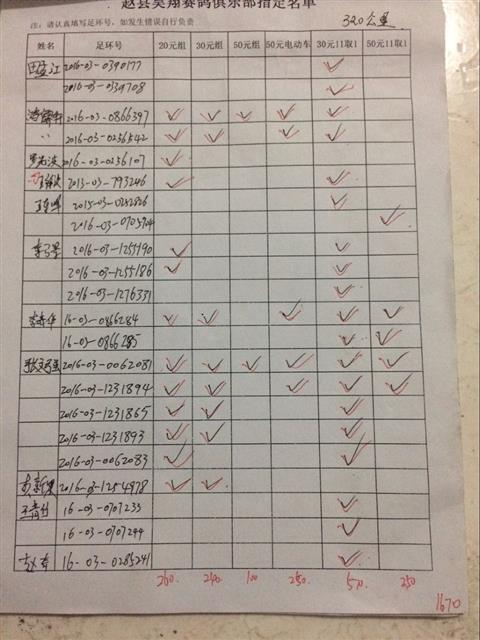 赵县昊翔赛鸽俱乐部指定名单
注：请认真填写足环号，如发生错误自行负责 320公里
姓名 足环号 20元组 30元组 50元组 50元电动车 30元11取1 50元11取1
2016-03-0390177
2016-03-0339708
2016-03-0866397
2016-03-0236542
2016-03-0236107
2013-03-793246
2015-03-0252826
2016-03-0705704
2016-03-1255190
2016-03-1255186
2016-03-1276331
16-03-0866284
16-03-0866285
2016-03-0062081
2016-03-1231894
2016-03-1231865
2016-03-1231893
2016-03-0062083
2016-03-1254978
16-03-0707233
16-03-0707244
16-03-0285241
260. 240. 100 250. 570. 250
1670